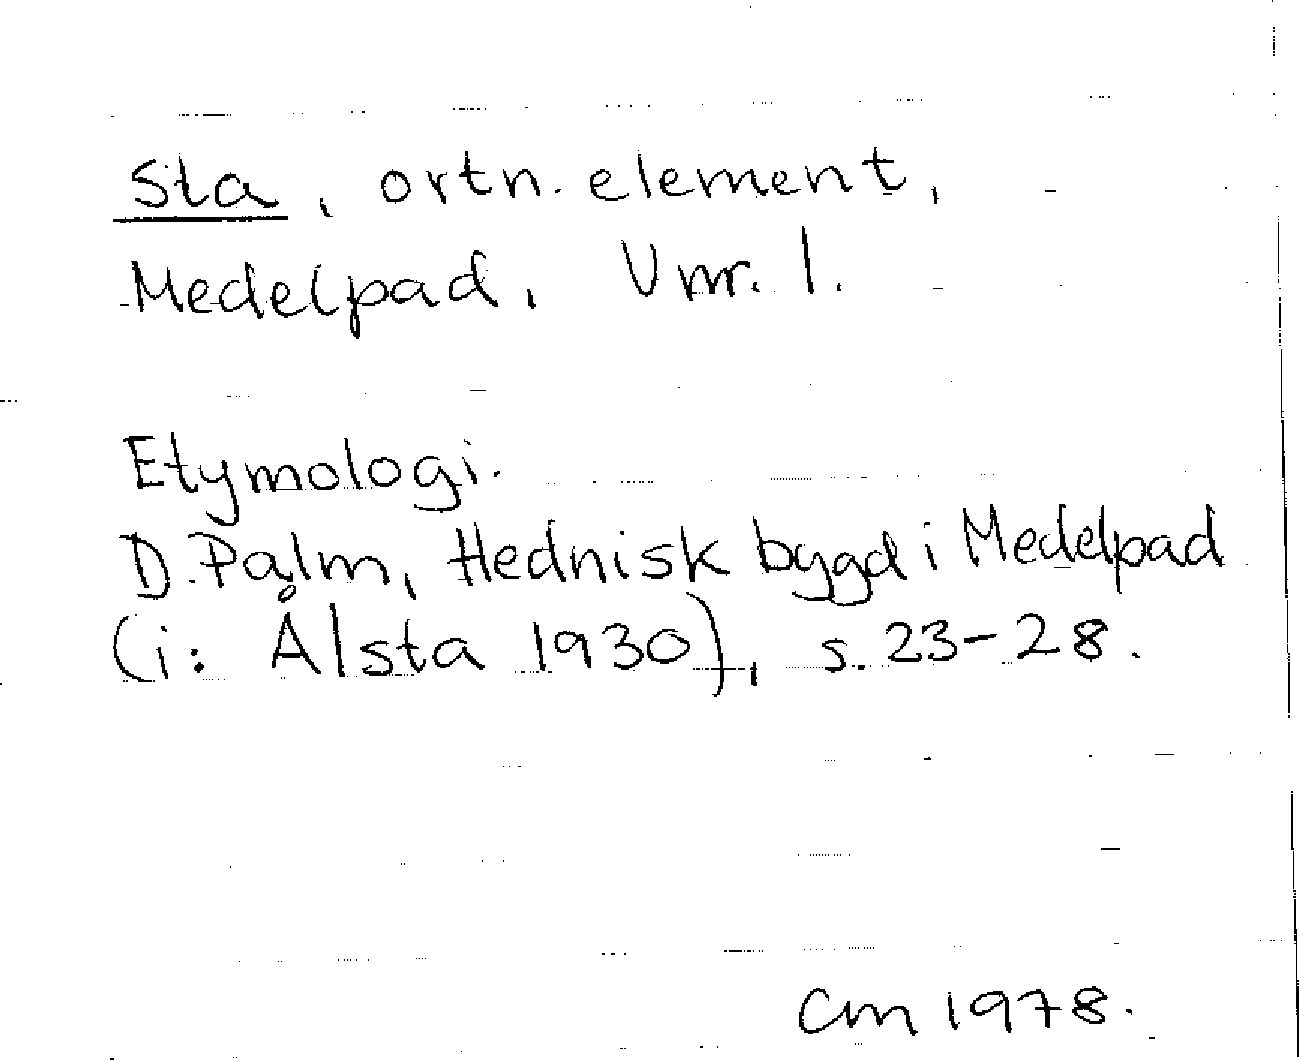 Sta, ortn. element,
Medelpad, Vmr. 1.
Etymologi.
D. Palm, Hednisk bygd i Medelpad
(i: Ålsta 1930), s. 23-28.
Cm 1978.